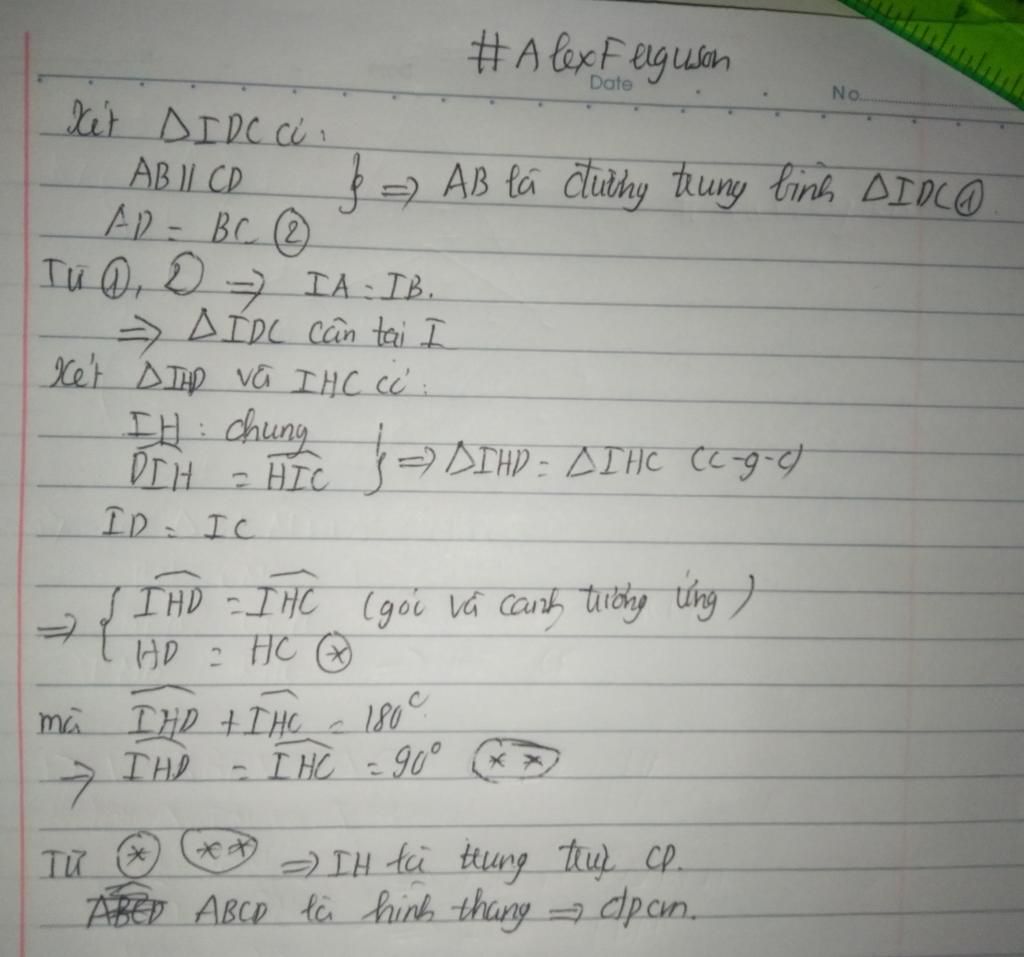 #AlexFerguson
Date No
Xét ΔIDC có:
AB // CD } ⇒ AB là đường trung bình ΔIDC ①
AD = BC ②
Từ ①, ② ⇒ IA = IB.
⇒ ΔIDC cân tại I
Xét ΔIHD và IHC có:
IH: chung
DIH = HIC } ⇒ ΔIHD = ΔIHC (c-g-c)
ID = IC
⇒ { IHD = IHC (góc và cạnh tương ứng)
HD = HC (*)
mà IHD + IHC = 180°
⇒ IHD = IHC = 90° (**)
Từ (*) (**) ⇒ IH là trung trực CD.
ABCD là hình thang ⇒ đpcm.